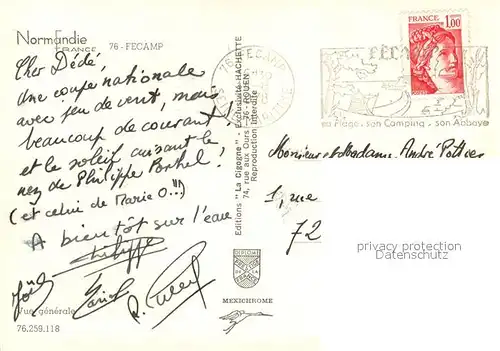 Normandie
FRANCE
76 - FECAMP
Cher Dédé,
Une coupe nationale
avec peu de vent, mais
beaucoup de courant!
et le soleil cuisant le
nez de Philippe
(et celui de Marie O..")
A bientôt sur l'eau
Philippe
Vue générale
76.259.118
76 FECAMP
SEINE MARITIME
Editions "La Cigogne" - Exclusivité HACHETTE
74, rue aux Ours - 76-ROUEN
Reproduction interdite
MEXICHROME
FRANCE
1,00
sa Plage, son Camping, son Abbaye
Monsieur et Madame André Pottier
1, rue
72
privacy protection